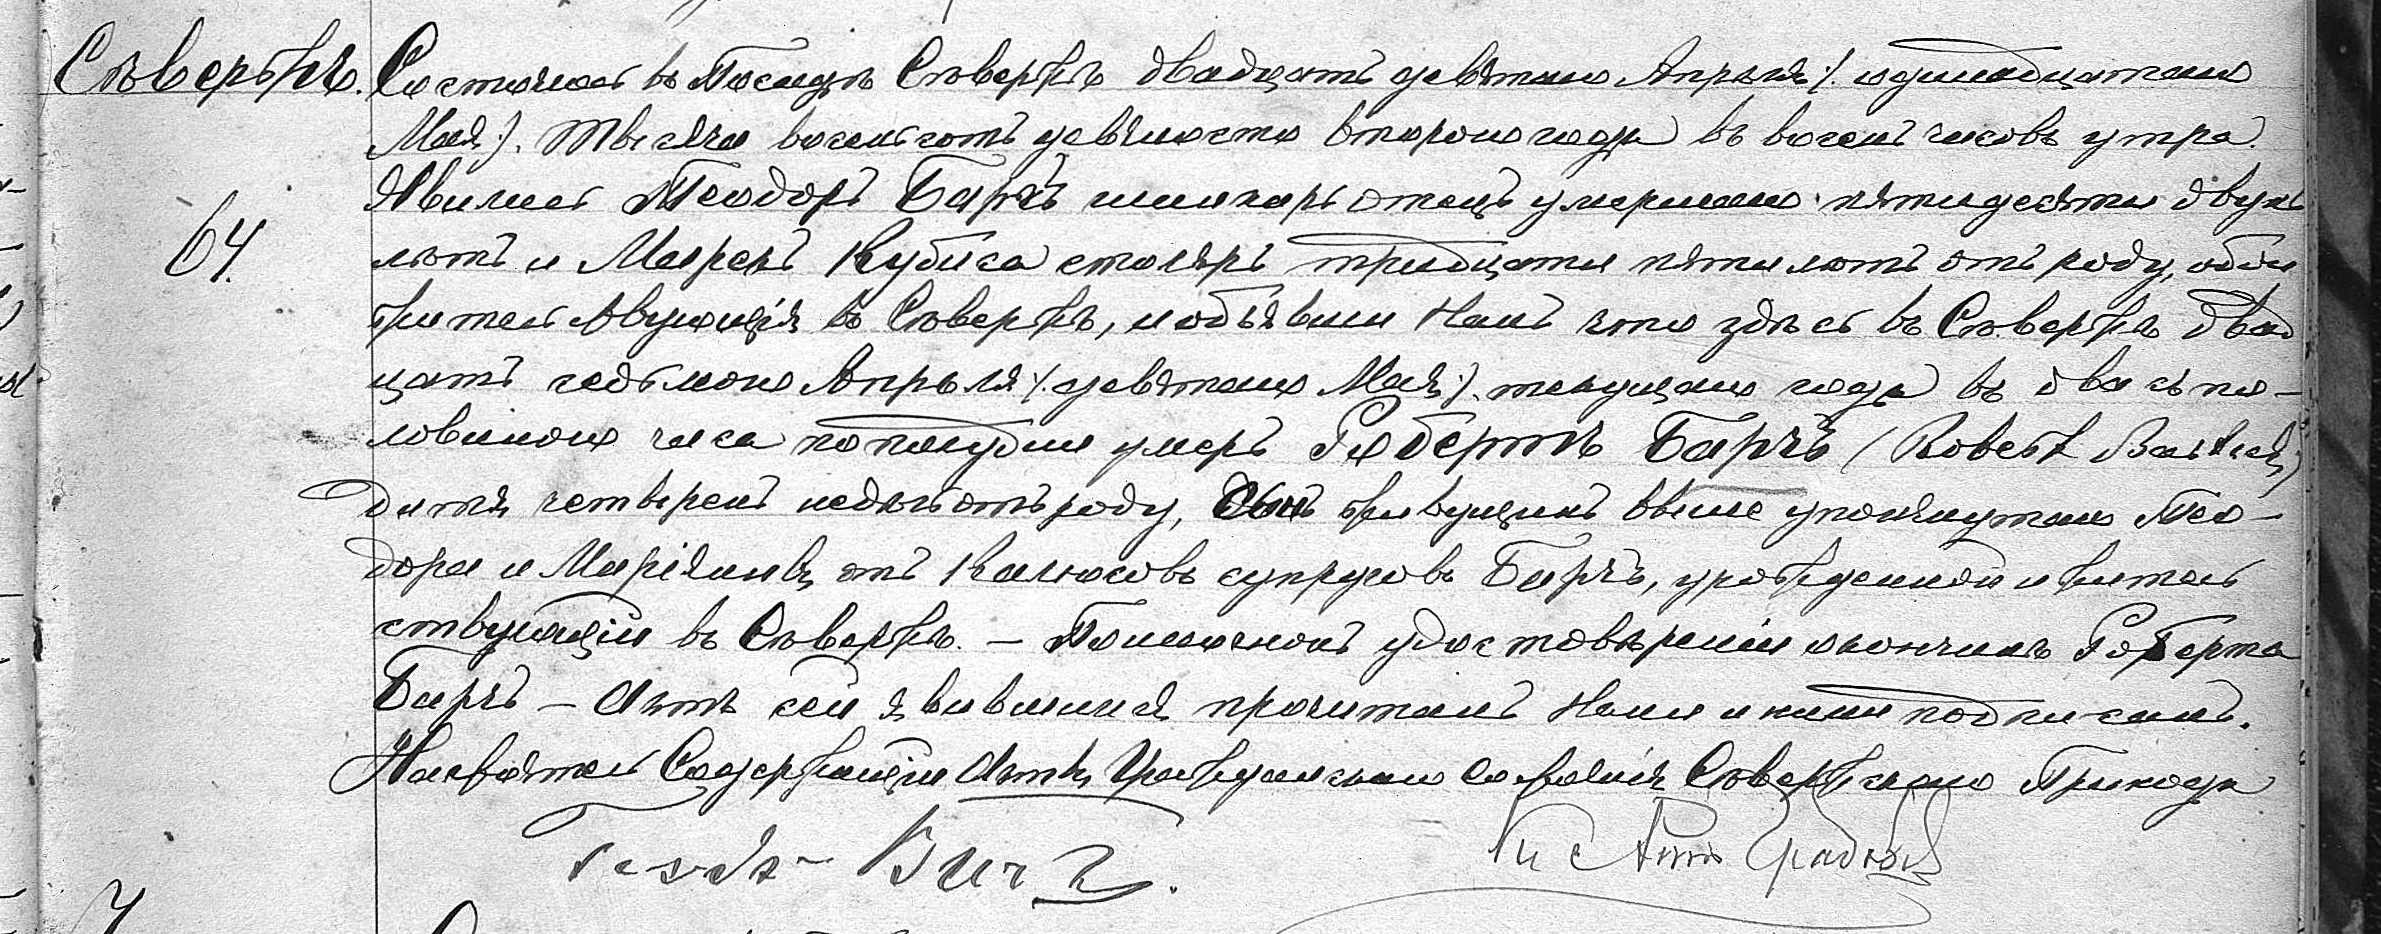 Сѣвержъ.
64.
Состоялось въ Посадѣ Сѣвержъ двадцать девятаго Апрѣля /: одинадцатаго
Мая :/. Тысяча восемьсотъ девяносто втораго года въ восемь часовъ утра.
Явились Теодоръ Барчъ отецъ умершаго пятидесяти двухъ
лѣтъ и Марекъ Кубиса столяръ тридцати пяти лѣтъ отъ роду, оба
жительствующія въ Сѣвержѣ, и объявили Намъ что здѣсь въ Сѣвержѣ двад
цать седьмого Апрѣля /: девятаго Мая :/. текущаго года въ два съ по-
ловиною часа пополудни умеръ Робертъ Барчъ /Robert
дитя четырехъ недѣль отъ роду, сынъ живущихъ выше упомянутаго Тео-
дора и Маріянны отъ супруговъ Барчъ, урожденной и житель
ствующій въ Сѣвержѣ. — По удостовѣреніи кончины Роберта
Барчъ — Актъ сей явившимся прочитанъ Нами и ними подписанъ.
Настоятель Содержащій Акты Гражданскаго Состоянія Сѣвержскаго Прихода